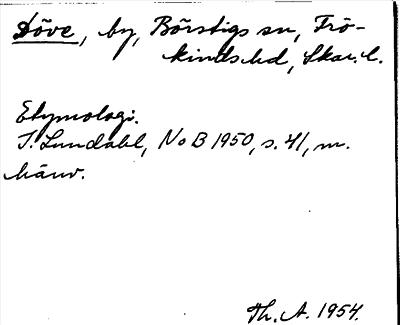 Döve, by, Börstigs sn, Frö-
kinds hd, Skar. l.
Etymologi.
I. Lundahl, NoB 1950, s. 41, m.
hänv.
Th. A. 1954.